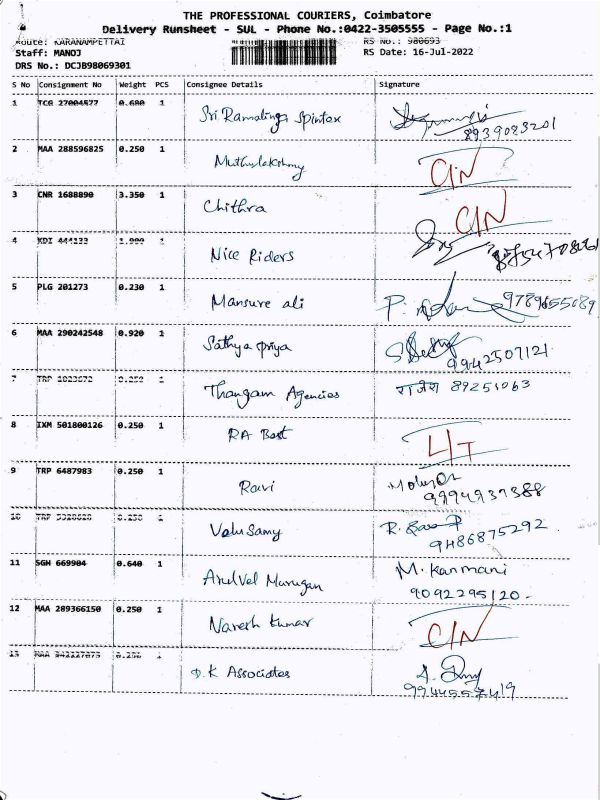 THE PROFESSIONAL COURIERS, Coimbatore
Delivery Runsheet - SUL - Phone No.:0422-3505555 - Page No.:1
Route: KARANAMPETTAI
RS No.: 980693
Staff: MANOJ
RS Date: 16-Jul-2022
DRS No.: DCJB98069301
S No Consignment No Weight PCS Consignee Details Signature
1 TCG 27004577 0.680 1 Sri Ramalinga Spintex
8939083201
2 MAA 288596825 0.250 1 Muthulakshmy C/N
3 CNR 1688890 3.350 1 Chithra C/N
4 KDI 444133 1.900 1 Nice Riders
5 PLG 201273 0.230 1 Mansure ali 9789655089
6 MAA 290242548 0.920 1 Sathya priya
9942507121
7 TRP 0.250 1 Thangam Agencies राजेश 89251063
8 IXM 501800126 0.250 1 RA Best L/T
9 TRP 6487983 0.250 1 Ravi
9994937388
10 TRP 0.250 1 Velu Samy R.
9486875292
11 SGH 669904 0.640 1 Arulvel Murugan M. Kanmani
9092295120.
12 MAA 289366150 0.250 1 Naresh Kumar C/N
13 MAA 0.250 1 D.K Associates